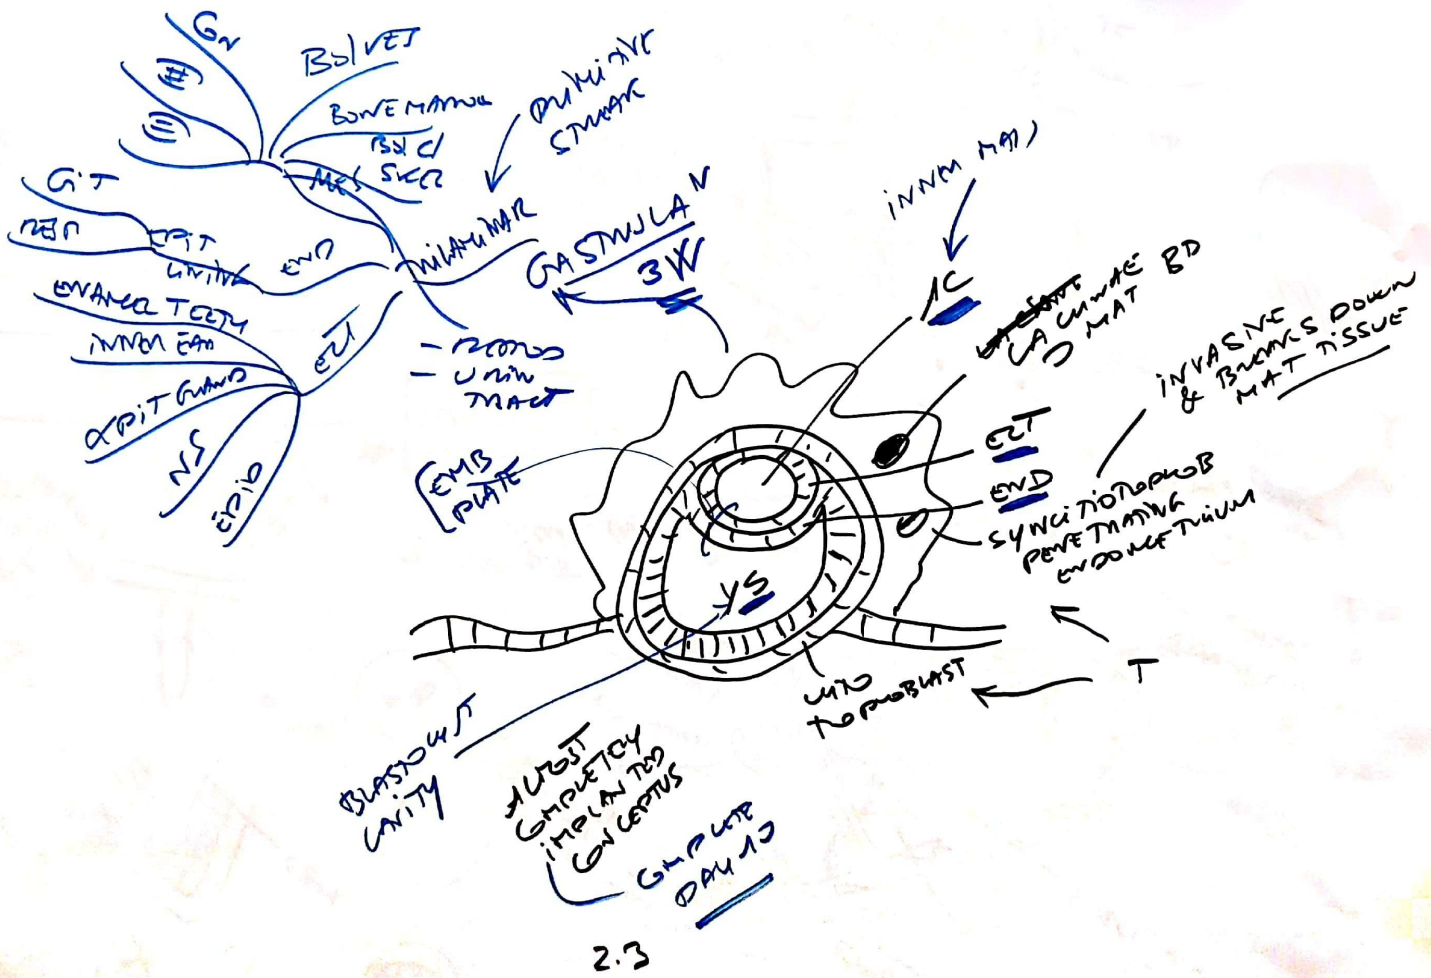 GN
BOLVES
BONE MARROW
BOLC/
SKEL
MES
PRIMITIVE
STREAK
GiT
RESP
EPiT
LiNiNG
END
TRILAMINAR
GASTRULAN
3W
ENAMEL TEETH
iNNER EAR
αPiT GLAND
NS
EPiD
ECT
- REPROD
- URIN
TRACT
iNNER MAS
AC
LACUNAE BD
MAT
iNVASIVE
& BREAKS DOWN
MAT TISSUE
ECT
END
SYNCiTIOTROPHOB
PENETRATING
ENDOMETRIUM
EMB
PLATE
YS
T
CYTO
TROPHOBLAST
BLASTOCYST
CAVITY
ALMOST
COMPLETELY
iMPLANTED
CONCEPTUS
COMPLETE
DAY 10
2.3